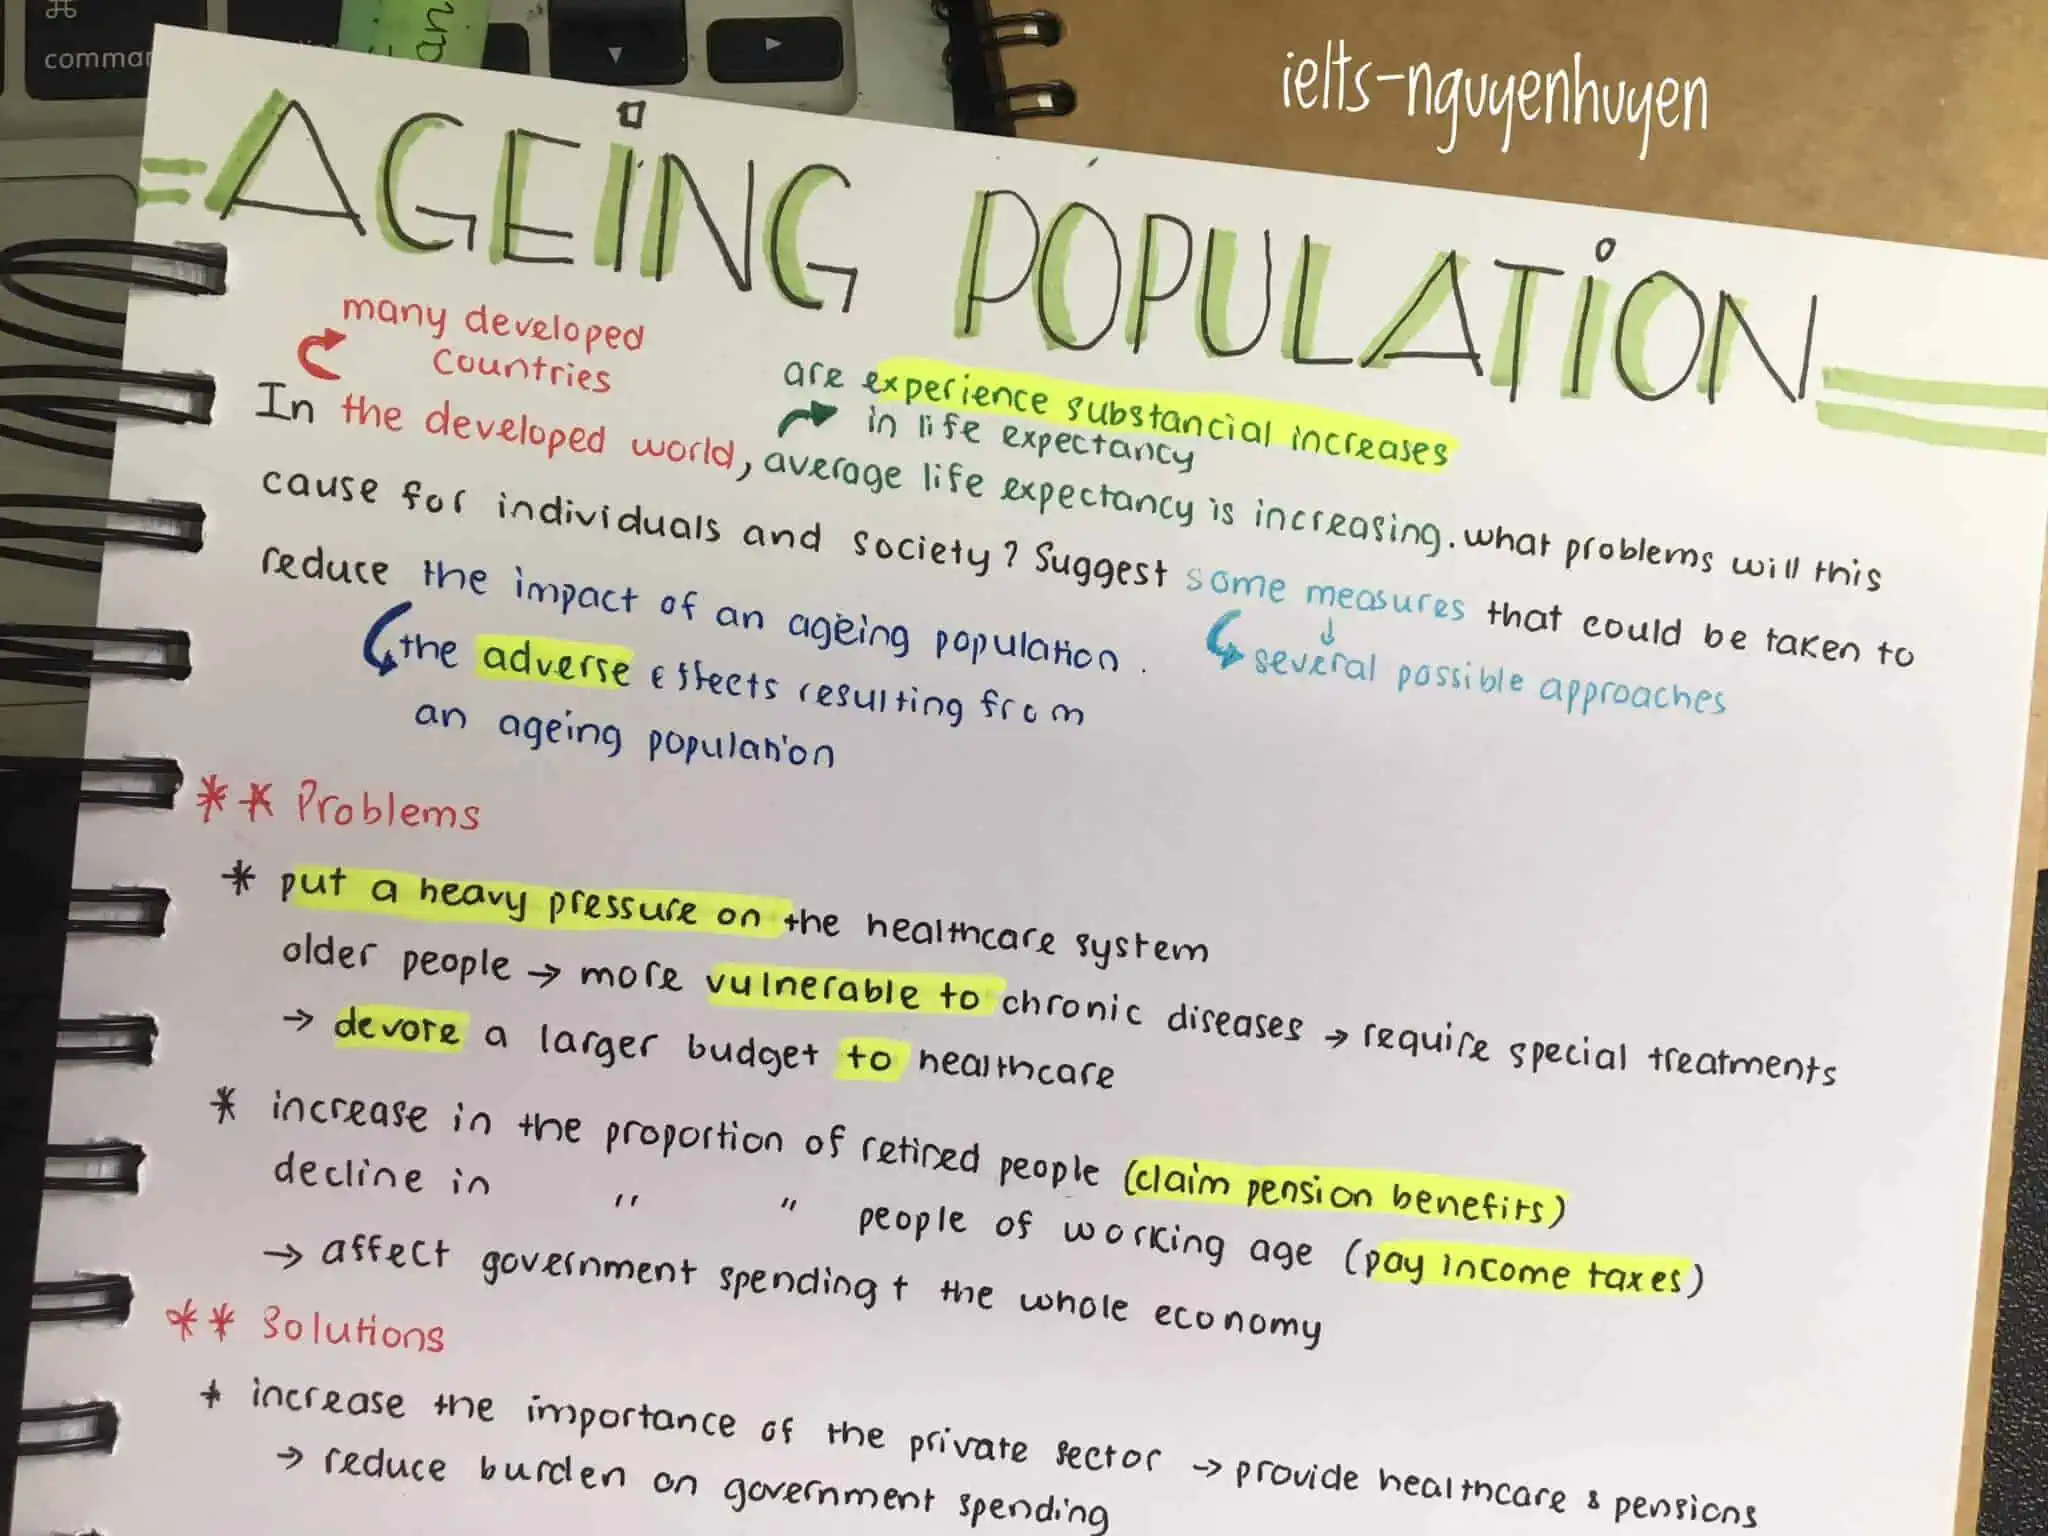 command
an
ielts-nguyenhuyen
AGEING POPULATION
many developed
countries
are experience substancial increases
in life expectancy
In the developed world, average life expectancy is increasing. what problems will this
cause for individuals and society? Suggest some measures that could be taken to
reduce the impact of an ageing population.
several possible approaches
the adverse effects resulting from
an ageing population
** Problems
* put a heavy pressure on the healthcare system
older people → more vulnerable to chronic diseases → require special treatments
→ devore a larger budget to healthcare
* increase in the proportion of retired people (claim pension benefits)
decline in " " people of working age (pay income taxes)
→ affect government spending + the whole economy
** Solutions
* increase the importance of the private sector → provide healthcare & pensions
→ reduce burden on government spending